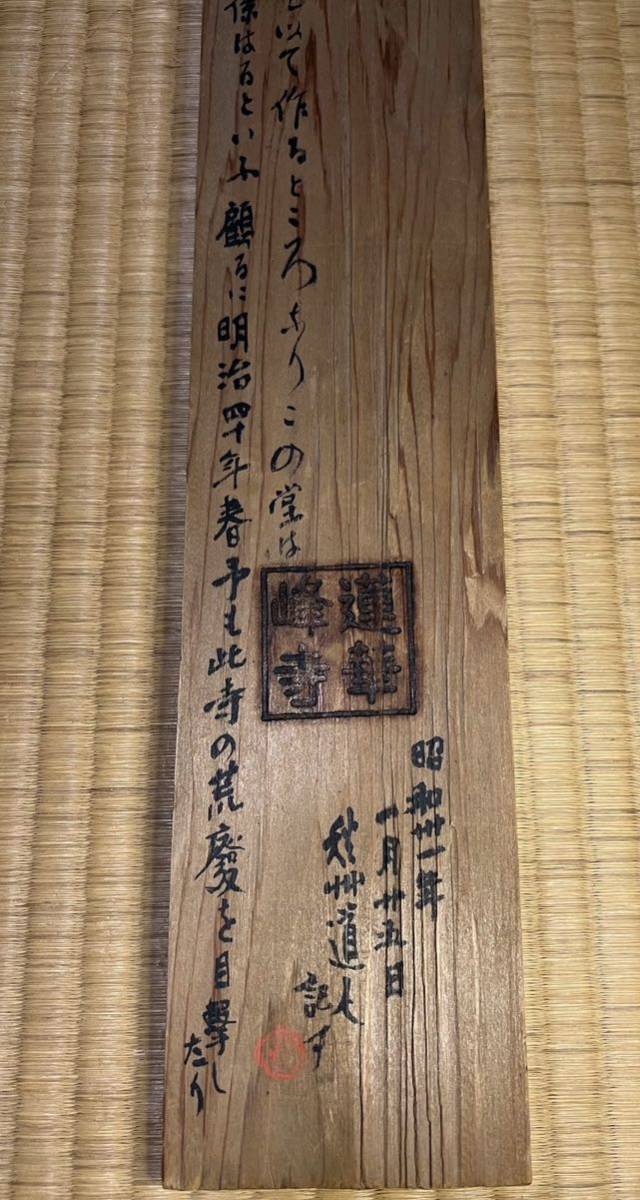 以て作るところなりこの堂は
係はるといふ顧るに明治四十年春予も此寺の荒廢を目撃したり
蓮華
峰寺
昭和卅一年
一月廿五日
秋艸道人
記す